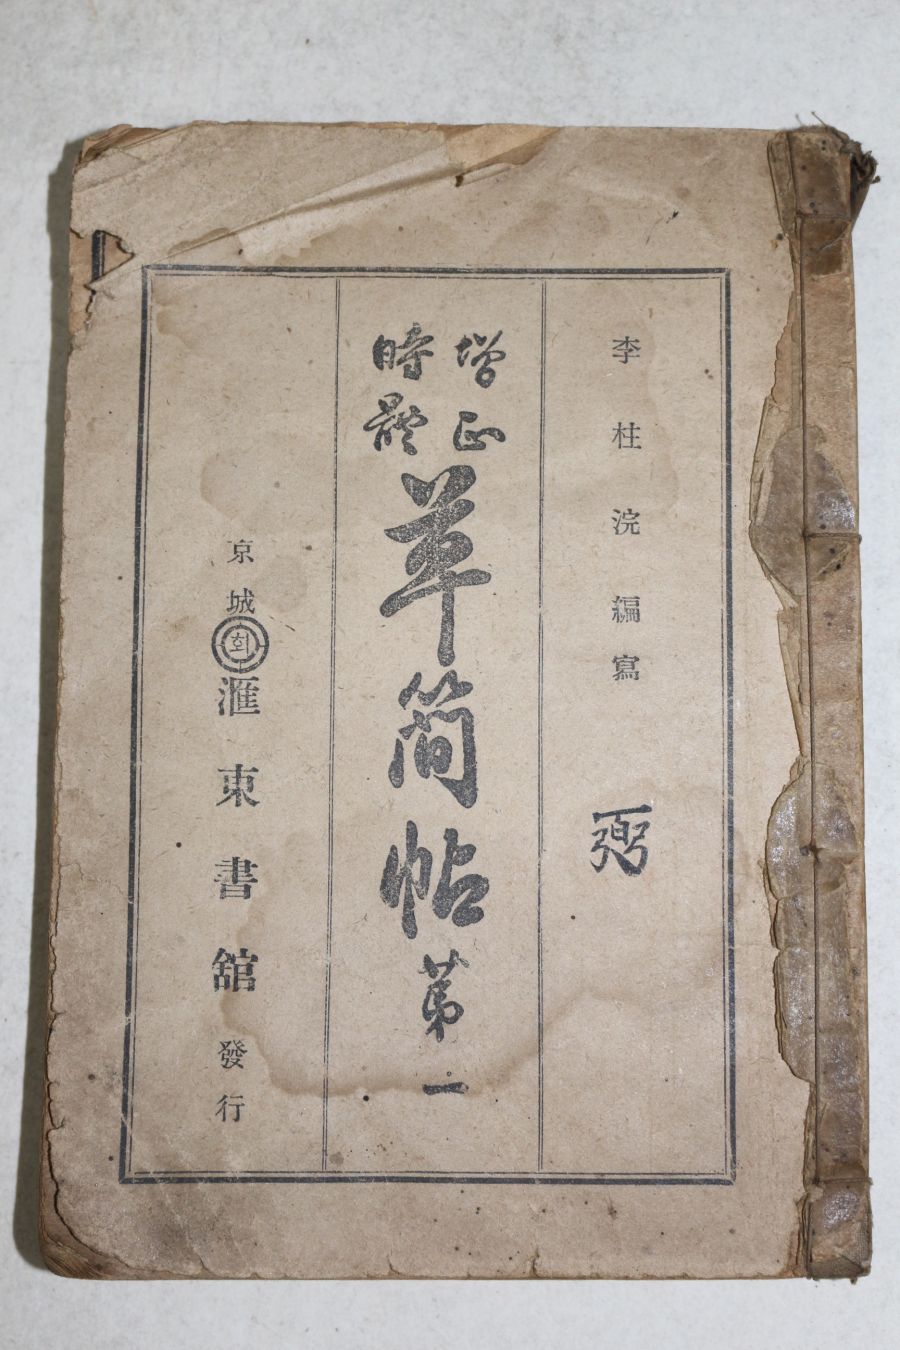 李柱浣編寫
弼
增正
時體
草簡帖第一
京城 회 滙東書舘發行